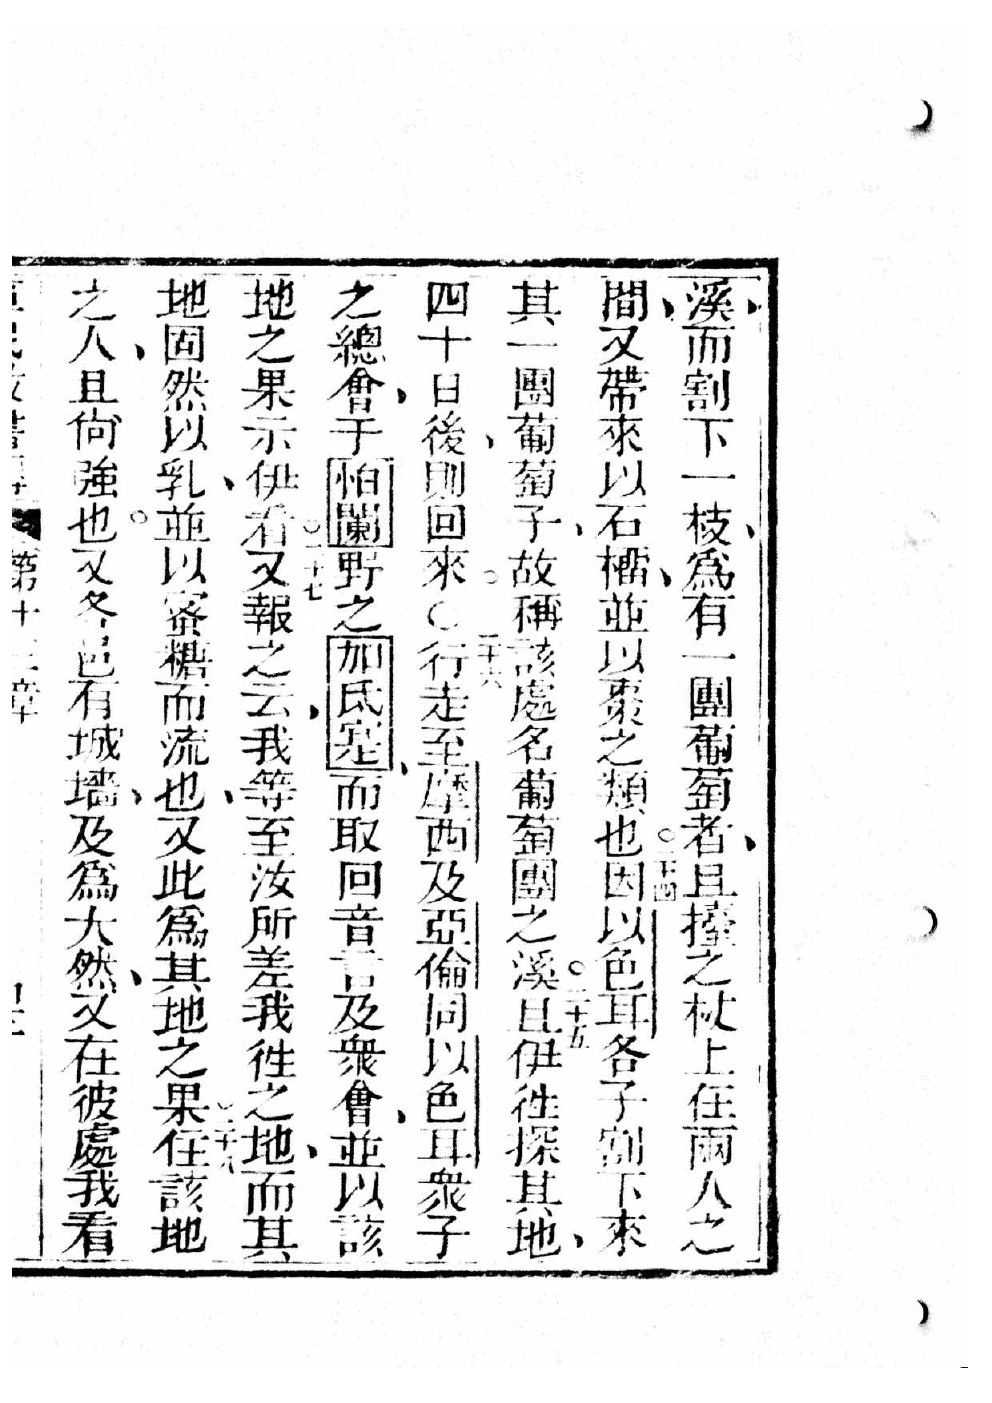 溪而割下一枝爲有一團葡萄者且擡之杖上在兩人之
間又帶來以石橊並以棗之類也○二十四因以色耳各子割下來
其一團葡萄子故稱該處名葡萄團之溪○二十五且伊徃探其地
四十日後則回來○二十六行走至摩西及亞倫同以色耳衆子
之總會于怕闌野之加氐寔而取回音言及衆會並以該
地之果示伊看○二十七又報之云我等至汝所差我徃之地而其
地固然以乳並以蜜糖而流也又此爲其地之果○二十八住該地
之人且尙強也○又各邑有城墻及爲大然又在彼處我看
第十三章